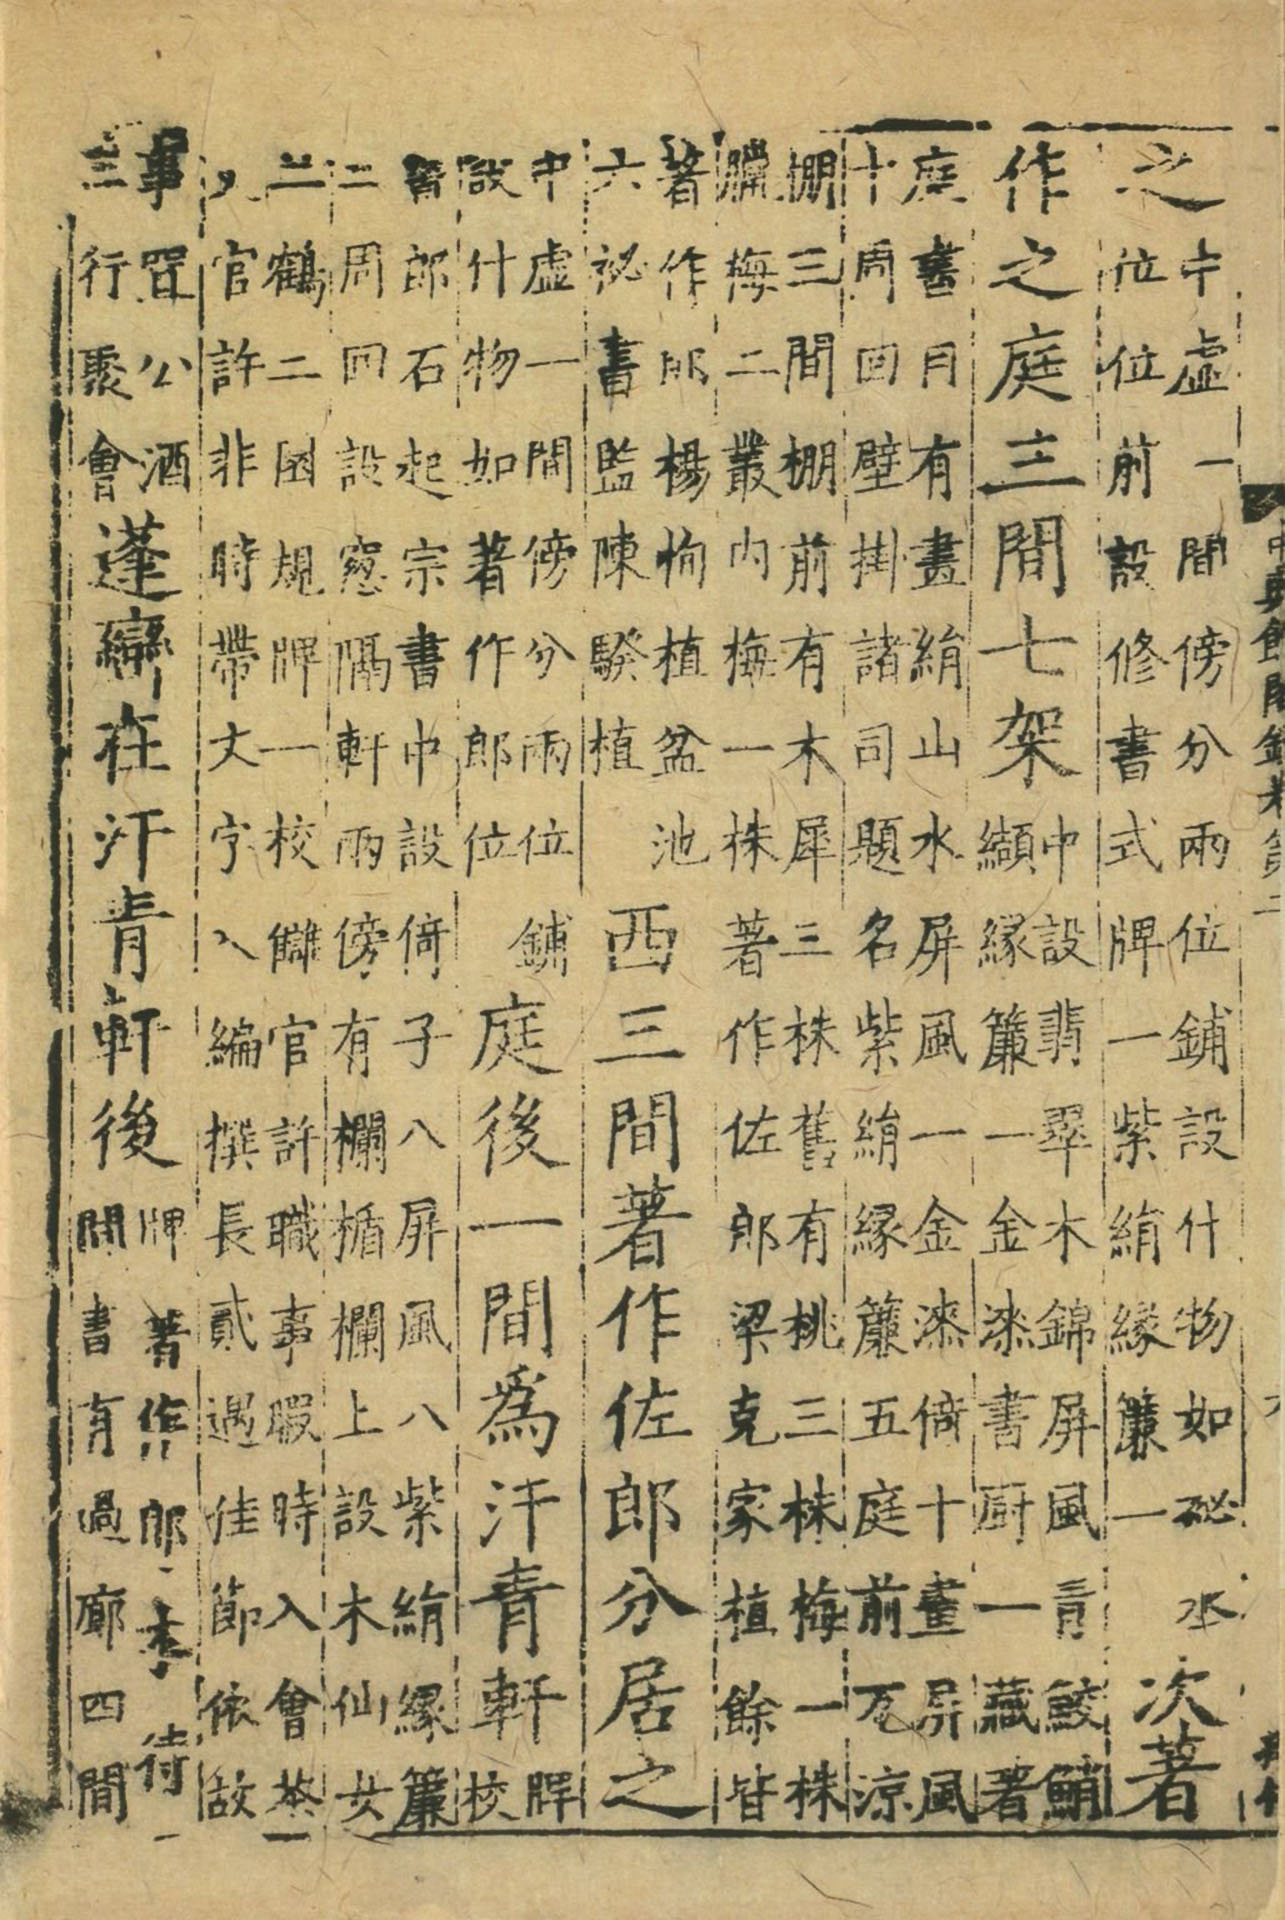 之
中虛一間傍分兩位鋪設什物如祕水
位位前設修書式牌一紫絹緣簾一
次著
作之庭三間七架
中設翡翠木錦屏風青鮫鮹
纈緣簾一金漆書厨一藏著
庭書目有畫絹山水屏風一金漆倚十畫屏風
十周回壁掛諸司題名紫絹緣簾五庭前瓦涼
棚三間棚前有木犀三株舊有桃三株梅一株
臘梅二叢內梅一株著作佐郎梁克家植餘皆
著作郎楊恂植盆池
六祕書監陳騤植
西三間著作佐郎分居之
中虛一間傍分兩位鋪
設什物如著作郎位
庭後一間爲汗青軒
牌
校
書郎石起宗書中設倚子八屏風八紫絹緣簾
二周回設窓隔軒兩傍有欄楯欄上設木仙女
二鶴二國規牌一校讎官許職事暇時入會茶一
人官許非時帶文字入編撰長貳遇佳節依故
事置公酒
三行聚會
蓬巒在汗青軒後
牌著作郎李待
問書有過廊四間